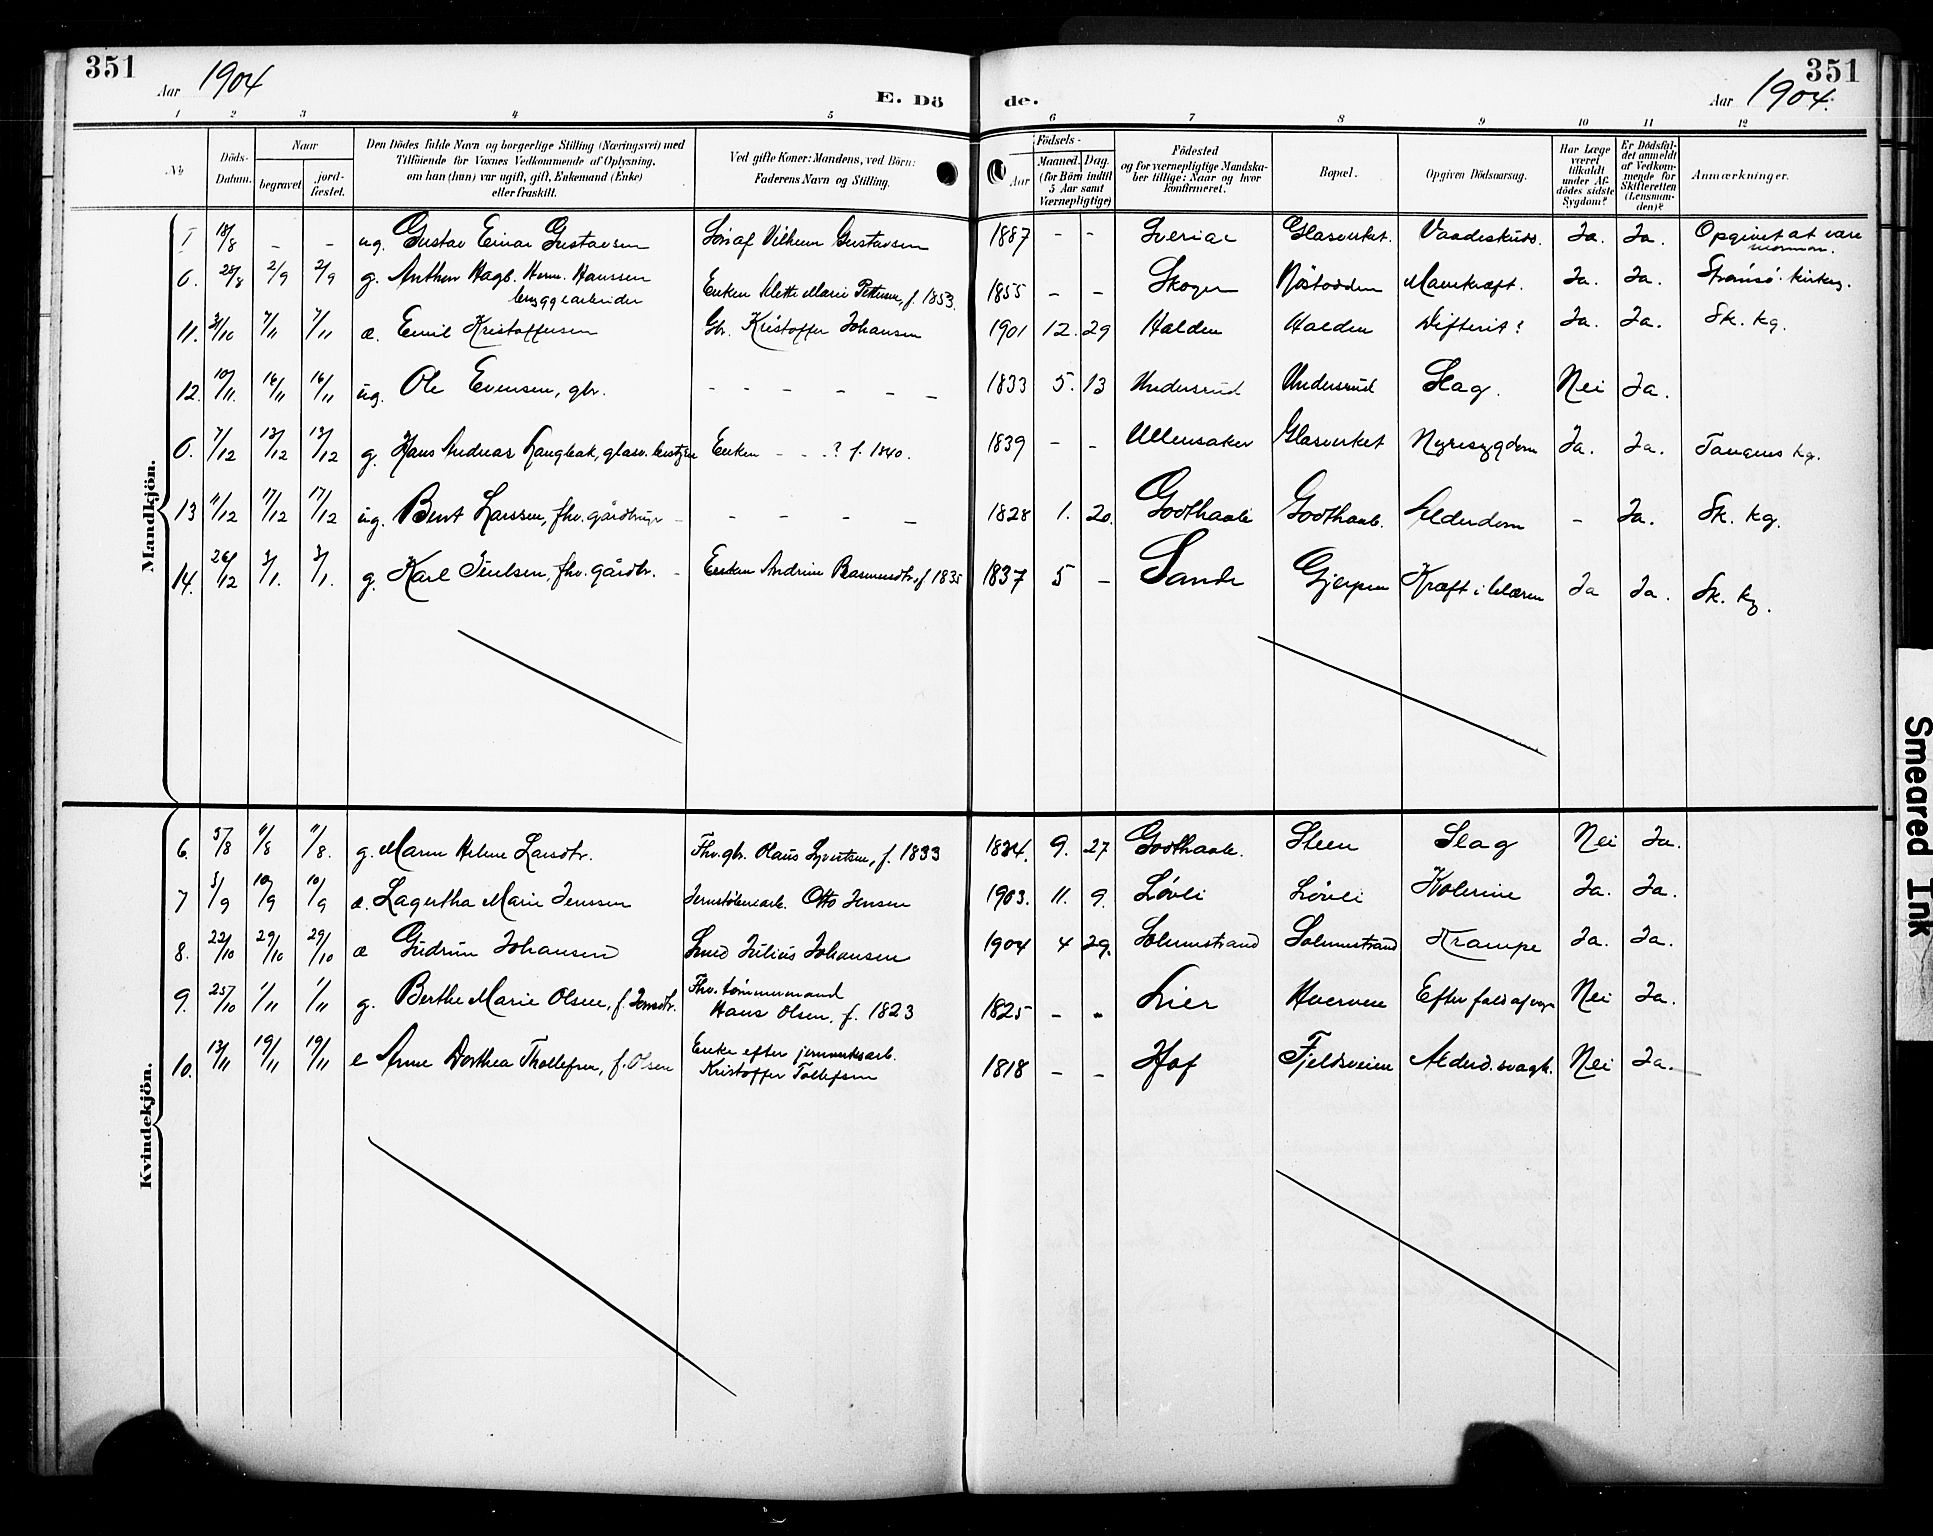 351
Aar 1904
E. Dö
de.
Aar 1904.
351
1 2 3 4 5 6 7 8 9 10 11 12
No
Döds-Datum.
Naar
begravet
jord-fæstet.
Den Dödes fulde Navn og borgerlige Stilling (Næringsvei) med
Tilföiende for Voxnes Vedkommende af Oplysning,
om han (hun) var ugift, gift, Enkemand (Enke)
eller fraskilt.
Ved gifte Koner: Mandens, ved Börn:
Faderens Navn og Stilling.
Födsels-
Aar
Maaned. Dag.
(for Börn indtil
5 Aar samt
Værnepligtige)
Födested
og for værnepligtige Mandska-
ber tillige: Naar og hvor
konfirmeret.
Bopæl.
Opgiven Dödsaarsag.
Har Læge
været
tilkaldt
under Af-
dödes sidste
Sygdom?
Er Dödsfal-
det anmeldt
af Vedkom-
mende for
Skifteretten
(Lensman-
den)?
Anmærkninger.
Mandkjön.
18/8 - - ug. Gustav Einar Gustavsen Sön af Vilhelm Gustavsen 1887 - - Sverige Glasverket. Vaadeskud. Ja. Ja. Opgivet at være
mormon.
0. 28/8 2/9 2/9 g. Anthon Hagb. Herm. Hanssen
bryggearbeider Enken Mette Marie Pettersen, f. 1853. 1855 - - Skoger Nöstodden Mavekræft. Ja. Ja. Strömsö kirkeg.
11. 31/10 7/11 7/11 æ. Emil Kristoffersen Gbr. Kristoffer Johansen 1901 12. 29 Halden Halden Difterit? Ja. Ja. Sk. kg.
12. 10/11. 16/11 16/11 ug. Ole Evensen, gbr. - - - - - - 1833 5. 13 Undersrud Undersrud Slag. Nei Ja.
0. 7/12 13/12 13/12 g. Hans Andreas Haugbak, glasv. Enken - - . ? f. 1840. 1839 - - Ullensaker Glasverket Nyresygdom Ja. Ja. Tangens kg.
13 11/12 17/12 17/12 ug. Bent Larssen, fhv. gårdbruger - - - - - 1828 1. 20. Godthaab Godthaab. Alderdom - Ja. Sk. kg.
14. 26/12 3/1. 3/1. g. Karl Juulsen, fhv. gårdbr. - Enken Andrine Rasmusdtr., f 1835 1837 5 - Sande Gjerpen Kræft i blæren Ja Ja. Sk. kg.
Kvindekjön.
6. 5/8 11/8 11/8. g. Maren Helene Larsdtr. Fhv. gbr. Olaus Syvertsen, f. 1833 1834. 9. 27 Godthaab. Steen Slag Nei Ja.
7 5/9 10/9 10/9 æ. Lagertha Marie Jenssen Jernstöberiarb. Otto Jensen 1903. 11. 9. Lövli Lövli Kolerine Ja. Ja.
8. 22/10 29/10 29/10 æ Gudrun Johansen Smed Julius Johansen 1904 4 29. Solumstrand Solumstrand Krampe Ja. Ja.
9. 25/10 1/11 1/11 g. Berthe Marie Olsen, f. Jonsdtr. Fhv. tömmermand
Hans Olsen, f. 1823 1825 - - Lier Hverven Efter fald af Nei Ja.
10. 13/11 19/11 19/11 e Anne Dorthea Thollefsen, f. Olsen Enke efter jernverksarb.
Kristoffer Tollefsen 1818 - - Hof Fjeldsveien Alderd. svagh. Nei Ja.
Smeared Ink